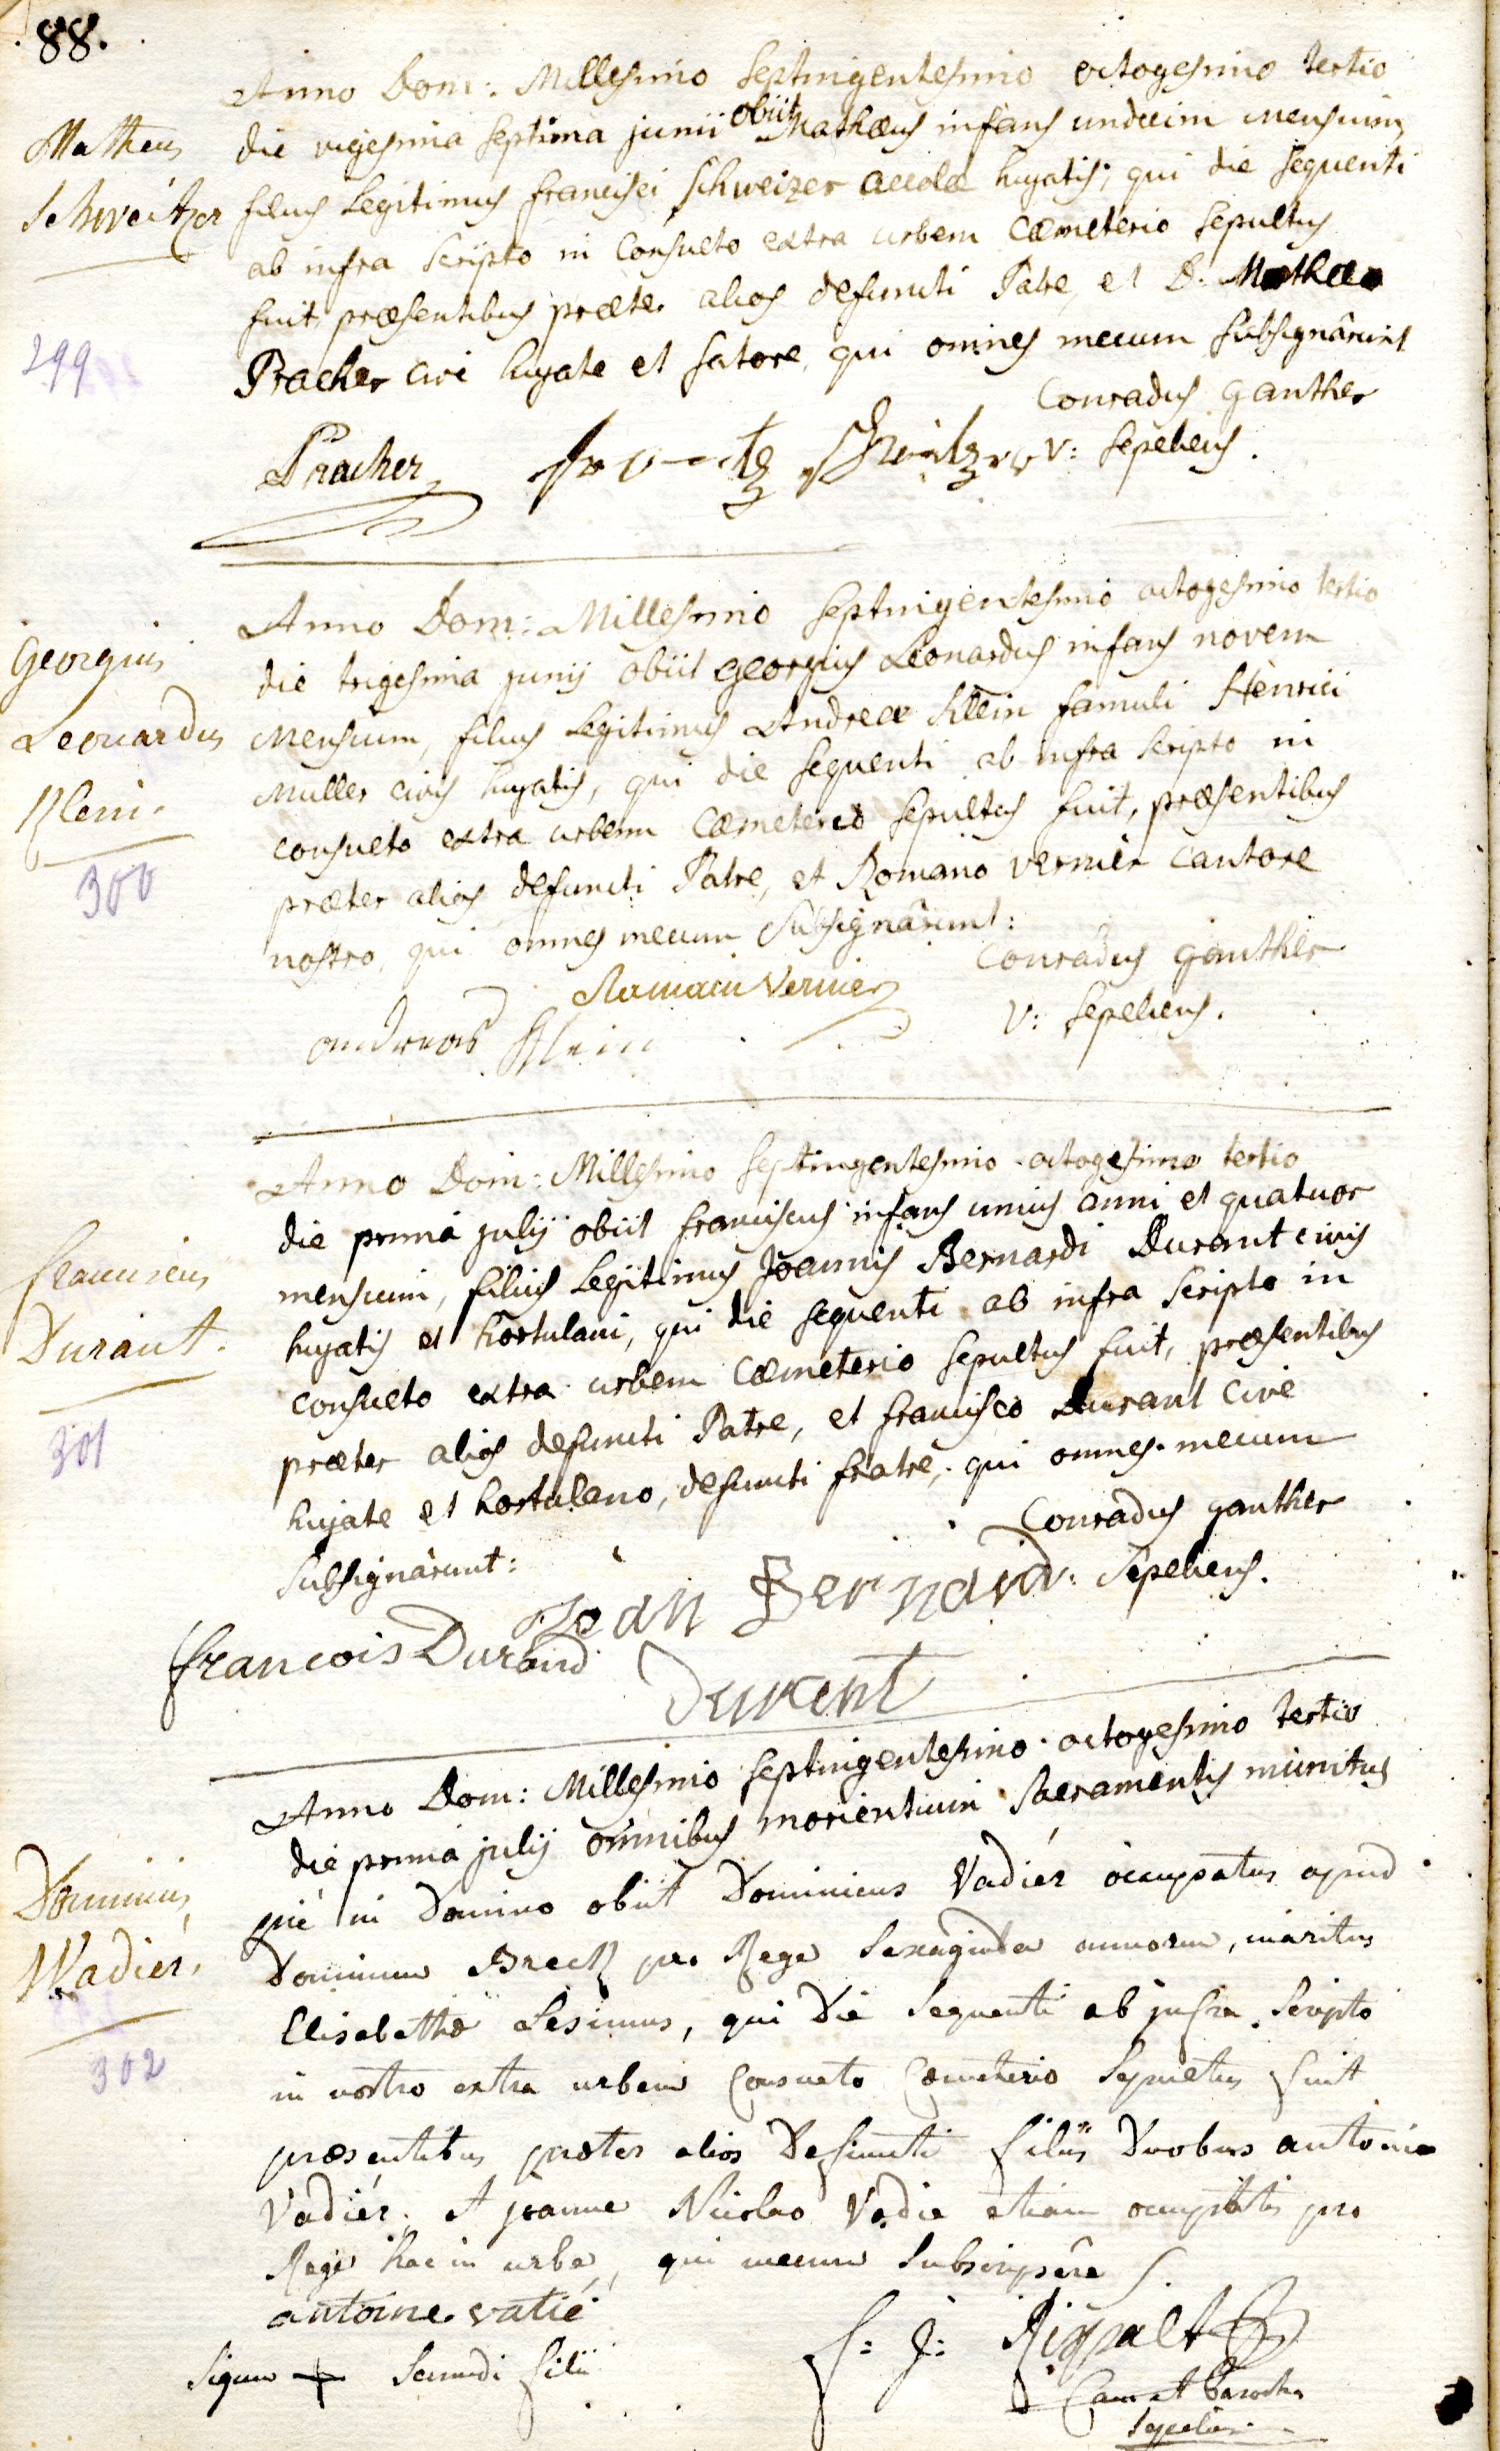 88.
Matheus
Schweitzer
299
Anno Dom: Millesimo Septingentesimo octogesimo tertio
die vigesima septima junii obiit Mathæus infans undecim mensium,
filius Legitimus francisci Schweizer accolæ hujatis; qui die sequenti
ab infra scripto in Consueto extra urbem Cœmeterio sepultus
fuit, præsentibus præter alios defuncti Patre, et D. Mathæo
Pracher cive hujate et satore, qui omnes mecum subsignârunt
Conradus ganther
Pracher Schweitzer v: sepeliens.
Georgius
Leonardus
Klein.
300
Anno Dom: Millesimo septingentesimo octogesimo tertio
die trigesima junij obiit georgius Leonardus infans novem
mensium, filius Legitimus Andreæ Klein famuli Henrici
Muller civis hujatis, qui die sequenti ab infra scripto in
consueto extra urbem Cœmeterio sepultus fuit, præsentibus
præter alios defuncti Patre, et Romano vernier Cantore
nostro, qui omnes mecum subsignârunt:
Conradus ganther
Romain Vernier
v: sepeliens.
andreas Klein
franciscus
Durant.
301
Anno Dom: Millesimo septingentesimo octogesimo tertio
die prima julij obiit franciscus infans unius anni et quatuor
mensium, filius Legitimus Joannis Bernardi Durant civis
hujatis et hortulani, qui die sequenti ab infra scripto in
consueto extra urbem Cœmeterio sepultus fuit, præsentibus
præter alios defuncti Patre, et francisco Durant Cive
hujate et hortulano, defuncti fratre, qui omnes mecum
subsignârunt:
Conradus ganther
Jean Bernard v: sepeliens.
francois Durand
Durent
Dominicus
Wadier.
302
Anno Dom: Millesimo septingentesimo octogesimo tertio
die prima julij omnibus morientium Sacramentis munitus
piè in Domino obiit Dominicus Vadiér occupatus apud
Dominum Breck pro Rege Sexaginta annorum, maritus
Elisabethæ Lesimus, qui die sequenti ab infra scripto
in nostro extra urbem Consueto Cœmeterio Sepultus fuit
præsentibus præter alios defuncti filiis duobus antonio
Vadiér, et joanne Nicolao Vadie etiam occupatis pro
Rege hac in urbe, qui mecum subscripsêre
antoine vatié
f: J: Rigpalt
Signum + Secundi filii
Can: et Parochus
Sepeliens